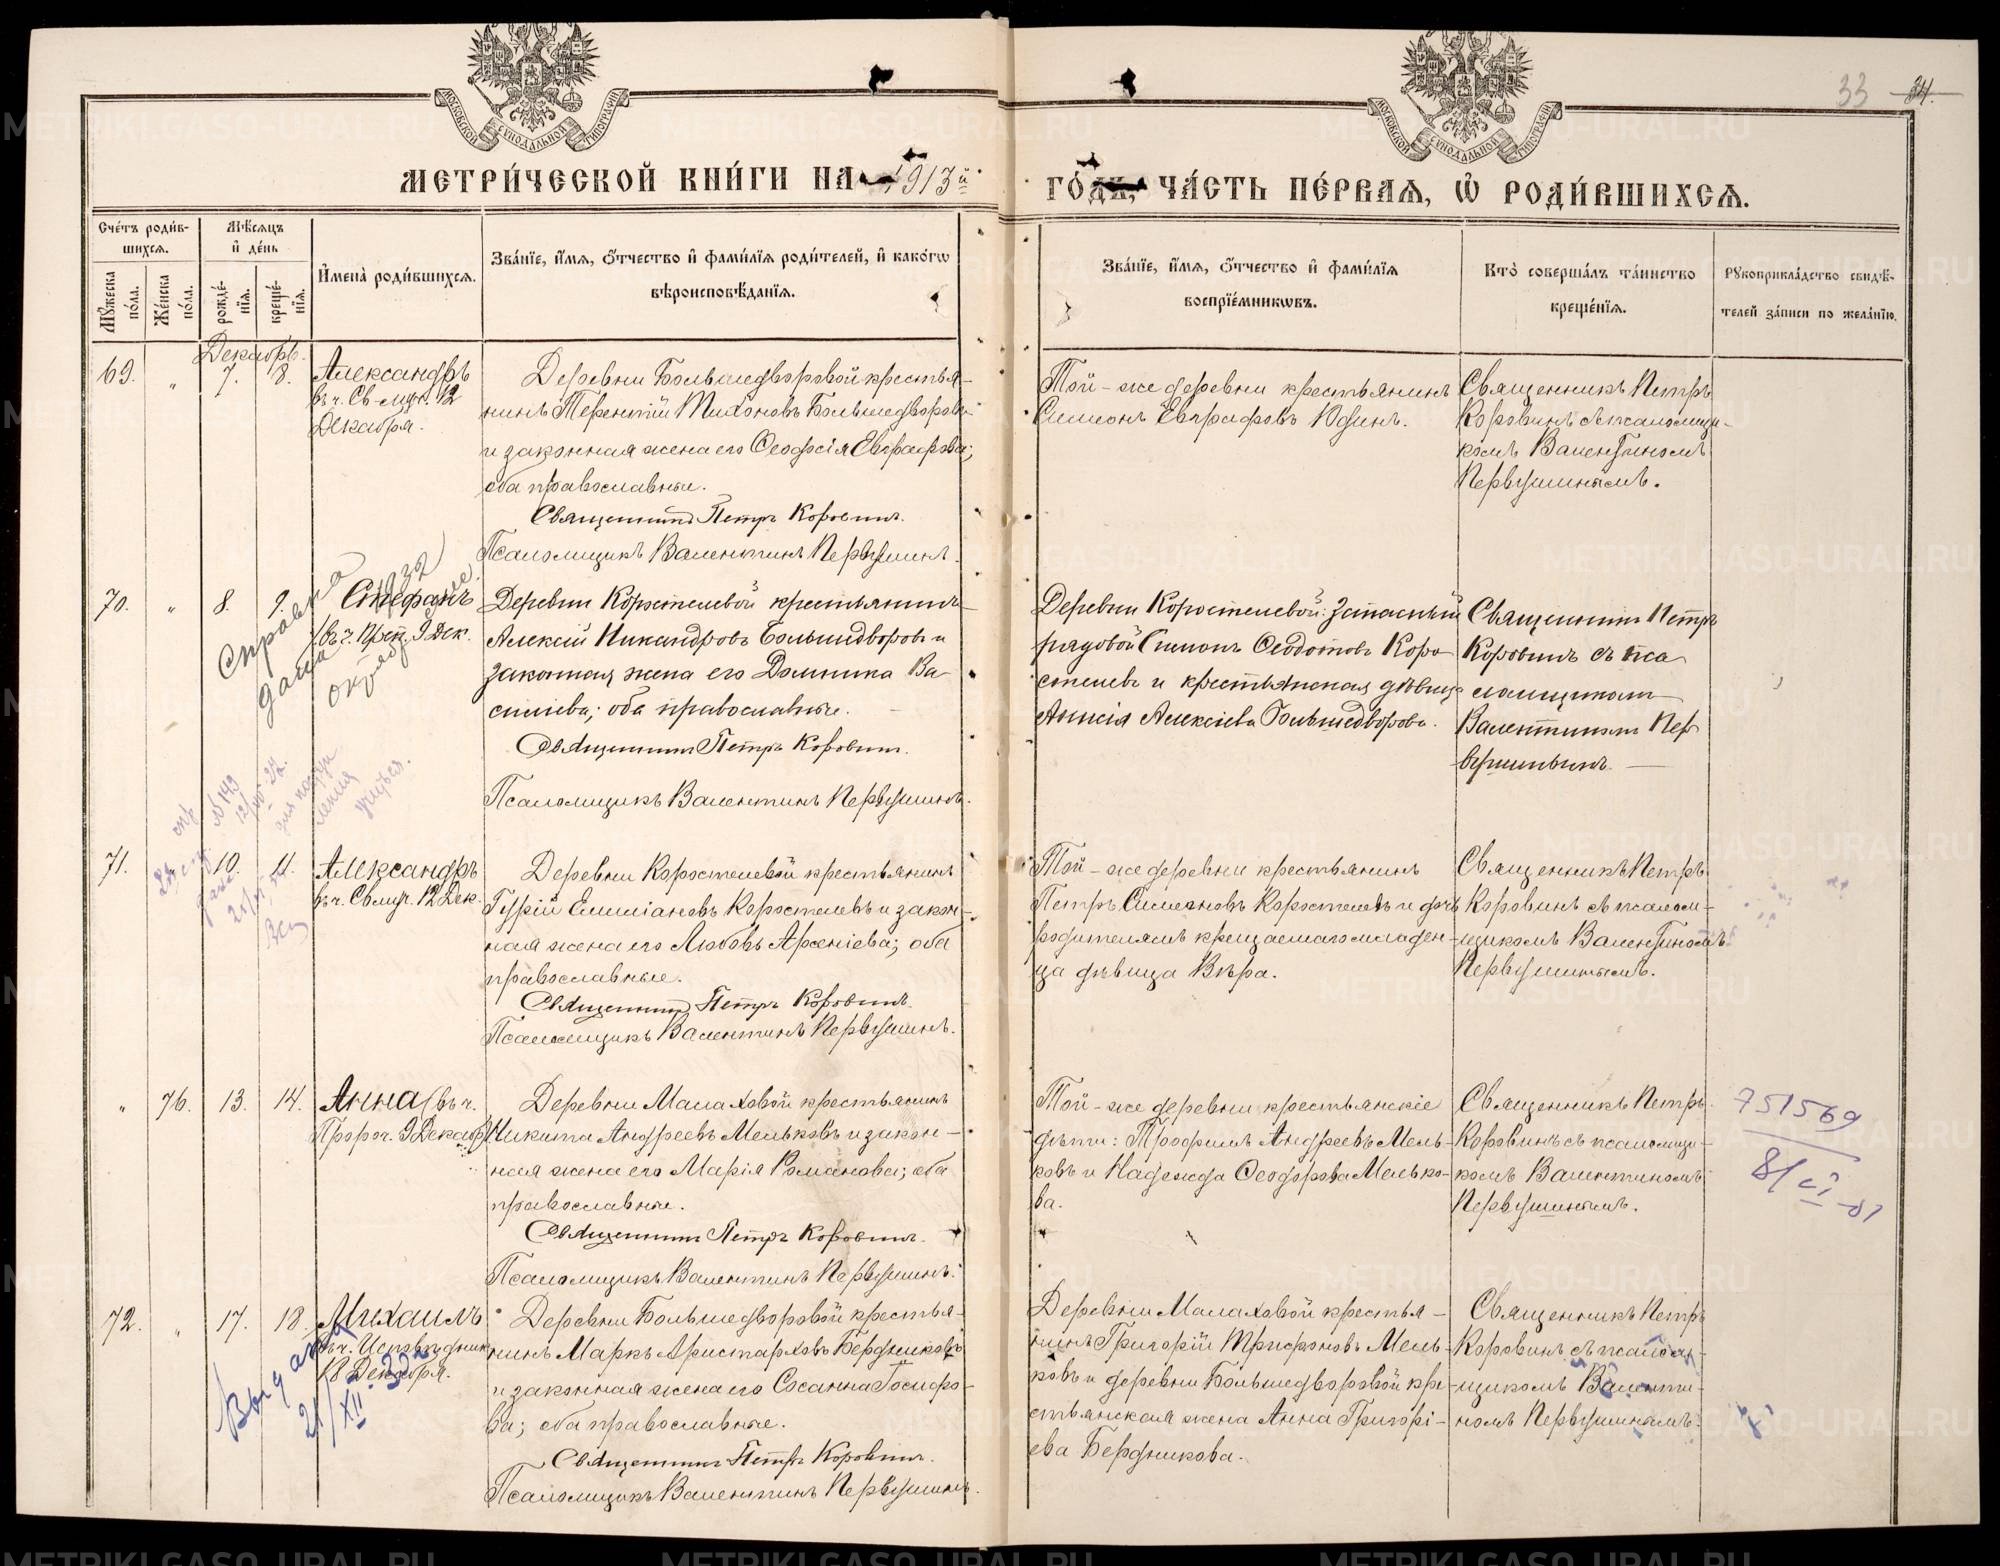 МОСКОВСКОЙ СУНОДАЛЬНОЙ ТИПОГРАФІИ
МОСКОВСКОЙ СУНОДАЛЬНОЙ ТИПОГРАФІИ
33 34.
МЕТРИ́ЧЕСКОЙ КНИ́ГИ НА 1913й
ГО́ДЪ, ЧА́СТЬ ПЕ́РВАЯ, Ѽ РОДИ́ВШИХСЯ.
Сче́тъ роди́в-
шихся.
Мѣ́сяцъ
и҆ де́нь
Мꙋ́жеска
по́ла.
Же́нска
по́ла.
рожде́-
нїѧ.
креще́-
нїѧ.
И҆мена̀ роди́вшихся.
Зва́нїе, и҆́мя, ѻ҆́тчество и҆ фами́лїя роди́телей, и҆ како́гѡ
вѣроисповѣ́данїя.
Зва́нїе, и҆́мя, ѻ҆́тчество и҆ фами́лїя
воспрїе́мникѡвъ.
Кто̀ соверша́лъ та́инство
креще́нїя.
Рꙋкоприкла́дство свидѣ́-
телей за́писи по жела́нїю.
Декабрь.
69. „ 7. 8.
Александръ
въ ч. Св-муч. 12
Декабря.
Деревни Большедворовой крестья-
нинъ Терентій Тихоновъ Большедворовъ
и законная жена его Ѳеодосія Евграфова;
оба православные.
Священникъ Петръ Коровинъ.
Псаломщикъ Валентинъ Первушинъ.
Той-же деревни крестьянинъ
Симеонъ Евграфовъ Юдинъ.
Священникъ Петръ
Коровинъ съ псаломщи-
комъ Валентиномъ
Первушинымъ.
70. „ 8. 9.
Стефанъ
въ ч. прп. 9 Дек.
Справка
дана
1932
Деревни Коростелевой крестьянинъ
Алексій Никандровъ Большедворовъ и
законная жена его Домника Ва-
силіева; оба православные.
Священникъ Петръ Коровинъ.
Псаломщикъ Валентинъ Первушинъ.
Деревни Коростелевой: запасный
рядовой Симонъ Ѳеодотовъ Коро-
стелевъ и крестьянская дѣвица
Анисія Алексіева Большедворова.
Священникъ Петръ
Коровинъ съ пса-
ломщикомъ
Валентиномъ Пер-
вушинымъ.
№ 149
71. „ 10. 11.
Александръ
въ ч. Свмуч. 12 Дек.
Деревни Коростелевой крестьянинъ
Гурій Емиліановъ Коростелевъ и закон-
ная жена его Любовь Арсеніева; оба
православные.
Священникъ Петръ Коровинъ.
Псаломщикъ Валентинъ Первушинъ.
Той-же деревни крестьянинъ
Петръ Симеоновъ Коростелевъ и дочь
родителямъ крещаемаго младен-
ца дѣвица Вѣра.
Священникъ Петръ
Коровинъ съ псалом-
щикомъ Валентиномъ
Первушинымъ.
„ 76. 13. 14.
Анна (въ ч.
Пророч. 9 Декабр)
Деревни Малаховой крестьянинъ
Никита Андреевъ Мельковъ и закон-
ная жена его Марія Романова; оба
православные.
Священникъ Петръ Коровинъ.
Псаломщикъ Валентинъ Первушинъ.
Той-же деревни крестьянскіе
дѣти: Трофимъ Андреевъ Мель-
ковъ и Надежда Ѳеодорова Мелько-
ва.
Священникъ Петръ
Коровинъ съ псаломщи-
комъ Валентиномъ
Первушинымъ.
751569
72. „ 17. 18.
Михаилъ
въ ч. Исповѣдник
18 Декабря.
Выдана
21/XII-32
Деревни Большедворовой крестья-
нинъ Маркъ Аристарховъ Бердниковъ
и законная жена его Сосанна Іосифо-
ва; оба православные.
Священникъ Петръ Коровинъ.
Псаломщикъ Валентинъ Первушинъ.
Деревни Малаховой крестья-
нинъ Григорій Трифоновъ Мель-
ковъ и деревни Большедворовой кре-
стьянская жена Анна Григорі-
ева Бердникова.
Священникъ Петръ
Коровинъ съ псалом-
щикомъ Валенти-
номъ Первушинымъ.
METRIKI.GASO-URAL.RU